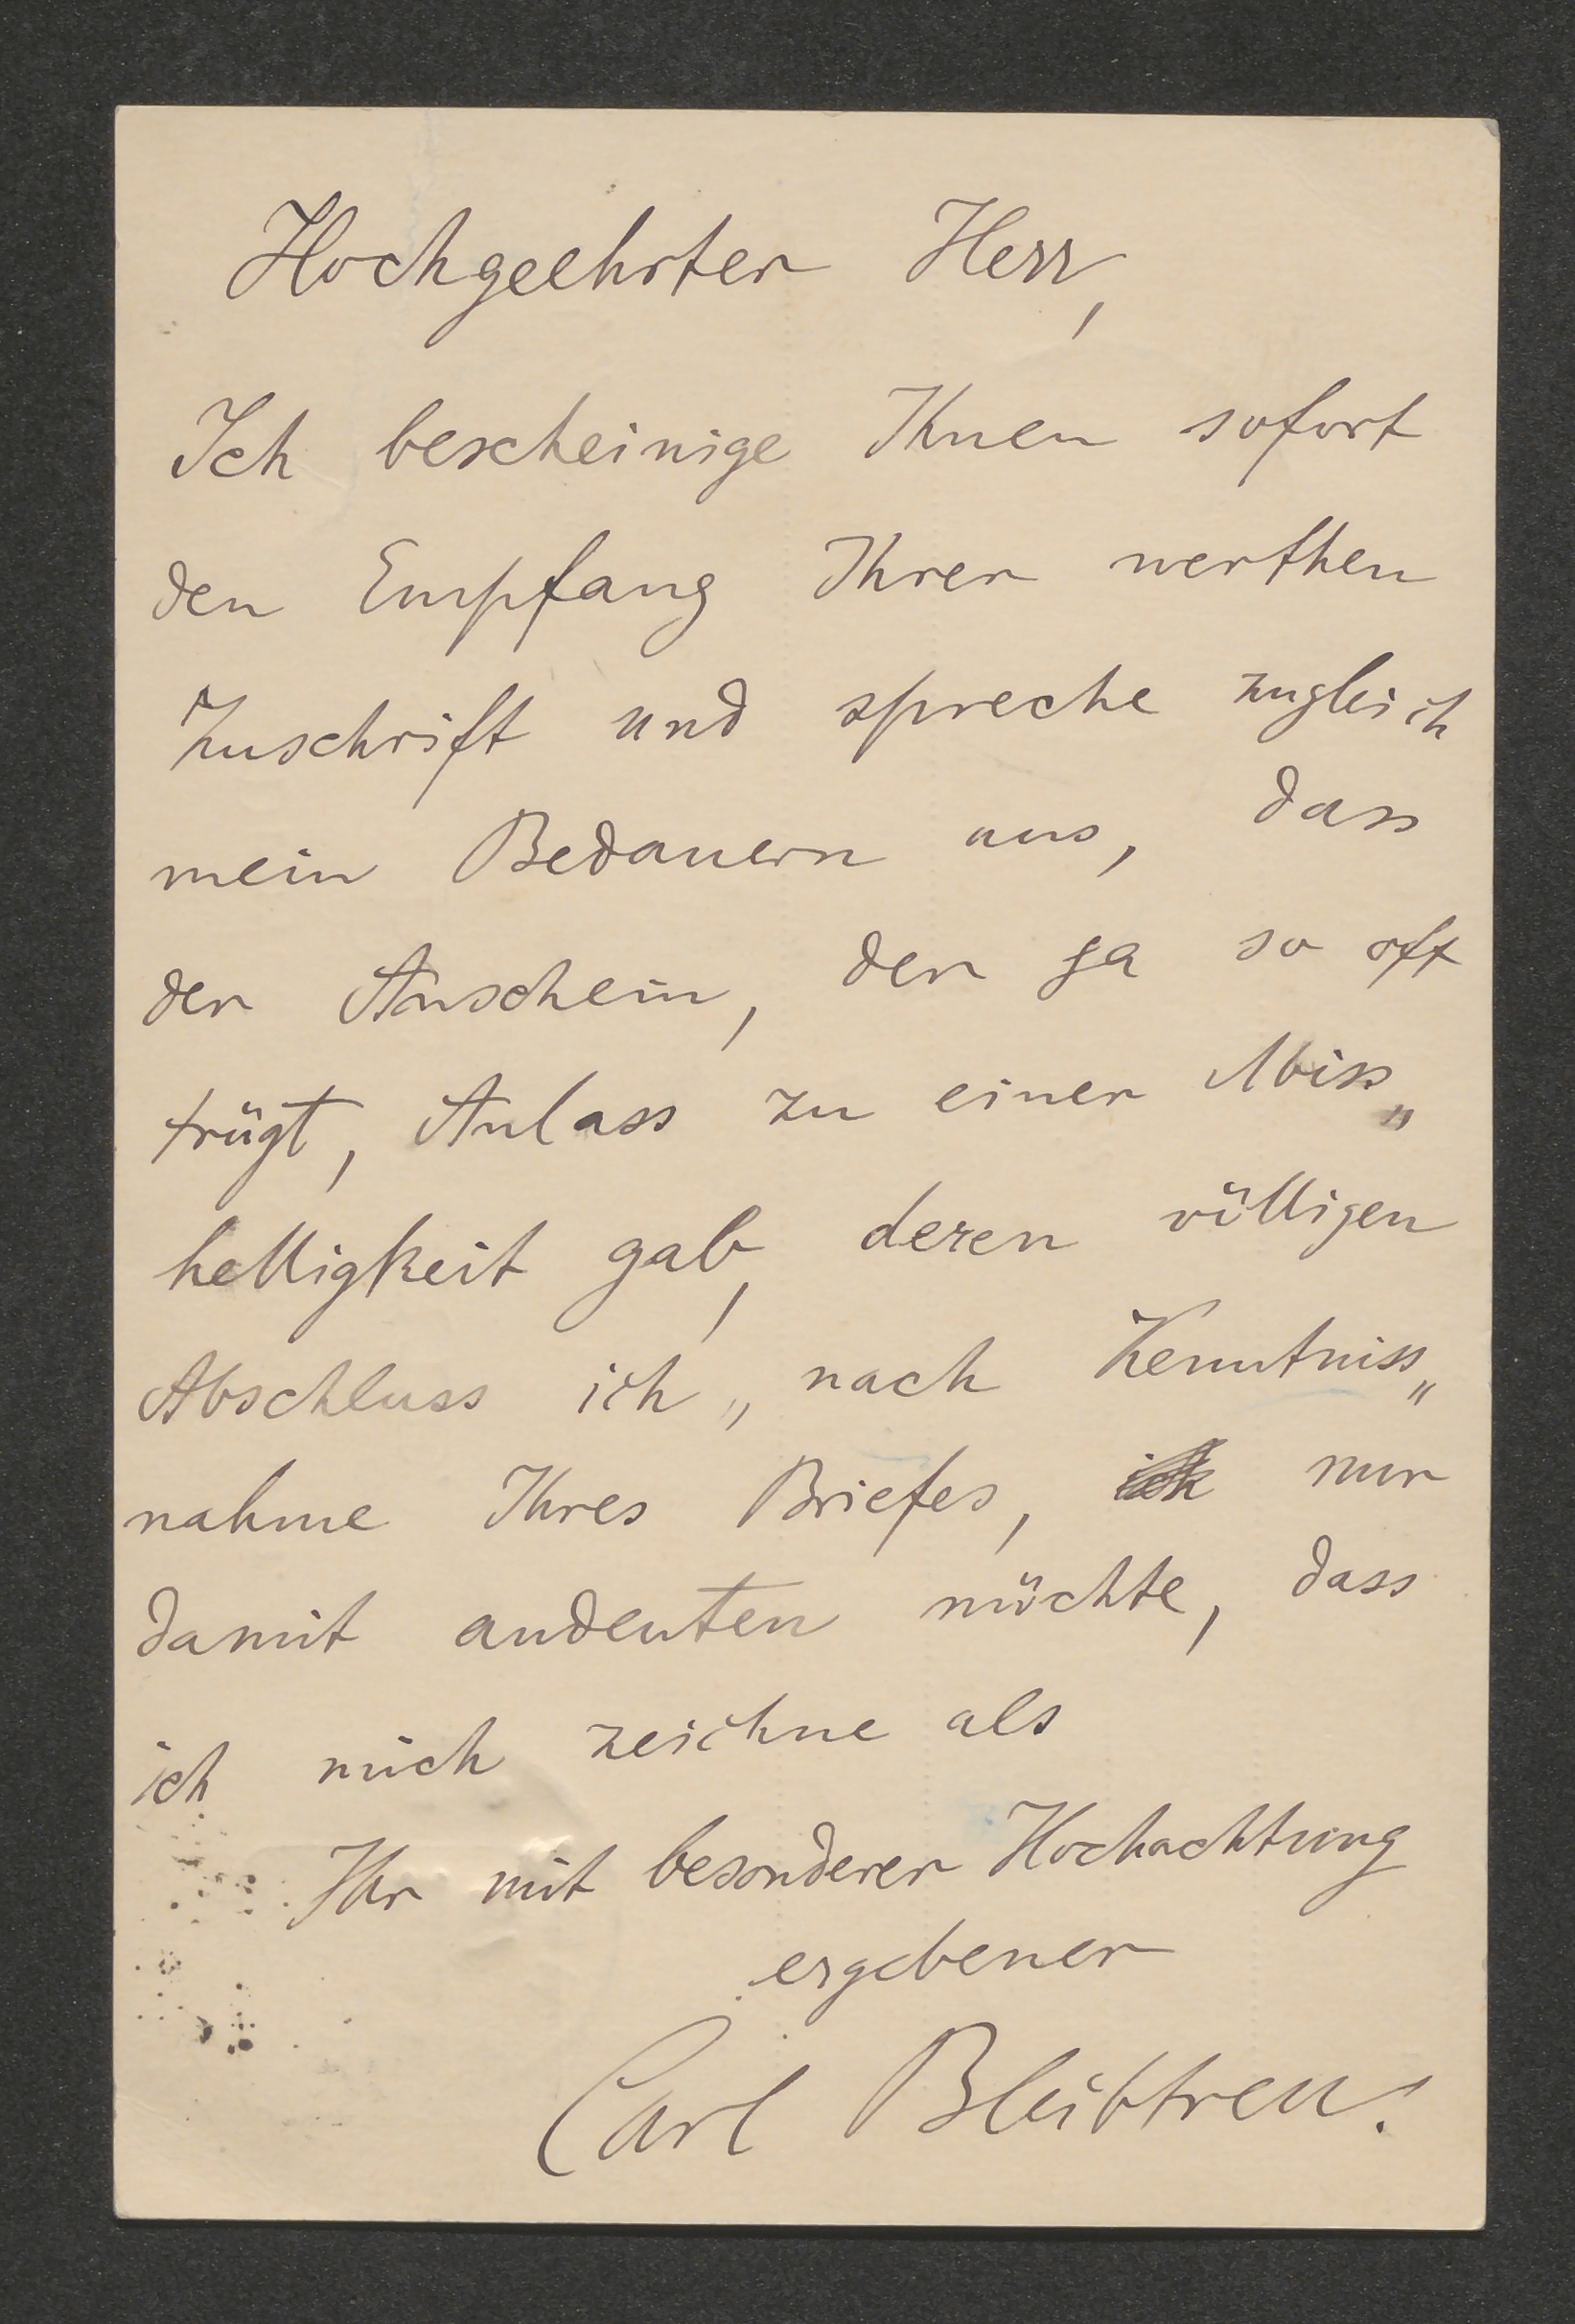 Hochgeehrter Herr,
Ich bescheinige Ihnen sofort
den Empfang Ihrer werthen
Zuschrift und spreche zugleich
mein Bedauern aus, dass
der Anschein, der ja so oft
trügt, Anlass zu einer Miss„
helligkeit gab, deren völligen
Abschluss ich „ nach Kenntniss„
nahme Ihres Briefes, nur
damit andeuten möchte, dass
ich mich zeichne als
Ihr mit besonderer Hochachtung
ergebener
Carl Bleibtreu.